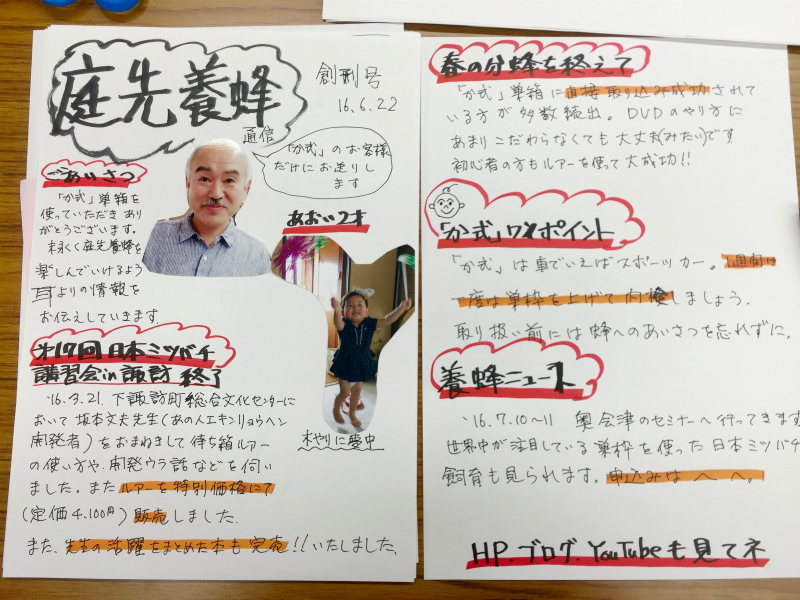 庭先養蜂
通信
創刊号
16.6.22
「か式」のお客様
だけにお送りし
ます
ごあいさつ
「か式」巣箱を
使っていただきあり
がとうございます。
末永く庭先養蜂を
楽しんでいけるよう
耳よりの情報を
お伝えしていきます
あおい2才
木やりに夢中
第17回日本ミツバチ
講習会in諏訪 終了
'16.3.21 下諏訪町総合文化センターに
おいて坂本文夫先生(あの人工キンリョウヘン
開発者)をおまねきして待ち箱ルアー
の使い方や、開発ウラ話などを伺い
ました。またルアーを特別価格にて
(定価4,100円)販売しました.
また、先生の活躍をまとめた本も完売!!いたしました。
春の分蜂を終えて
「か式」巣箱に直接取り込み成功されて
いる方が多数続出。DVDのやり方に
あまりこだわらなくても大丈夫(みたい)です
初心者の方もルアーを使って大成功!!
「か式」ワンポイント
「か式」は車でいえばスポーツカー。1週間に
一度は巣枠を上げて内検しましょう.
取り扱い前には蜂へのあいさつを忘れずに.
養蜂ニュース
'16.7.10〜11 奥会津のセミナーへ行ってきます
世界中が注目している巣枠を使った日本ミツバチ
飼育も見られます。申込みは へ へ。
HP.ブログ.YouTubeも見てネ